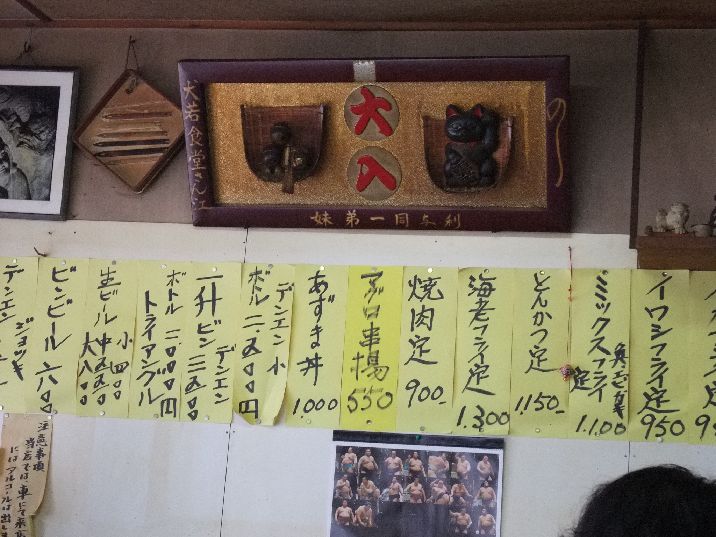 大入
の し
大若食堂さん江
妹第一同与利
イワシフライ定 950
ミックスフライ定 1.100
とんかつ定 1150
海老フライ定 1.300
焼肉定 900
マグロ串揚 550
あずま丼 1.000
デンエン 小
ボトル 二.五〇〇円
一升ビン 三五〇〇
デンエン
ボトル 二.〇〇〇円
トライアングル
生ビール 小 四〇〇
中 五五〇
大 八〇〇
ビンビール 六八〇
デンエン ジョッキ
注意事項
当店では 車にて来
にはアルコールは出し